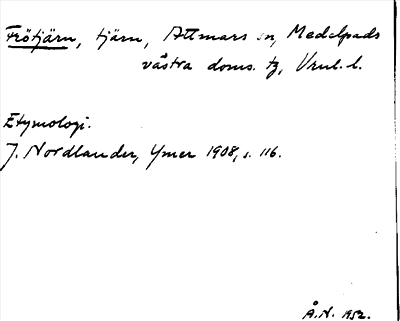 Frötjärn, tjärn, Attmars sn, Medelpads
västra doms. tg, Vnul. l.
Etymologi.
J. Nordlander, Ymer 1908, s. 116.
Å.N. 1952.